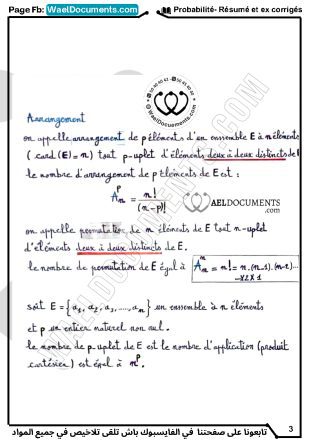 Page Fb: WaelDocuments.com
Probabilité- Résumé et ex corrigés
Arrangement
on appelle arrangement de p éléments d'un ensemble E à n éléments
(card (E) = n) tout p-uplet d'éléments deux à deux distincts de E
le nombre d'arrangement de p éléments de E est :
A_n^p = n! / (n-p)!
WAELDOCUMENTS
.com
on appelle permutation de n éléments de E tout n-uplet
d'éléments deux à deux distincts de E.
le nombre de permutation de E égal à A_n^n = n! = n.(n-1).(n-2)...
...x2x1
soit E = {a1, a2, a3, ...., an} un ensemble à n éléments
et p un entier naturel non nul.
le nombre de p-uplet de E est le nombre d'application (produit
cartésien) est égal à n^p.
WAELDOCUMENTS.COM
تابعونا على صفحتنا في الفايسبوك باش تلقى تلاخيص في جميع المواد
3